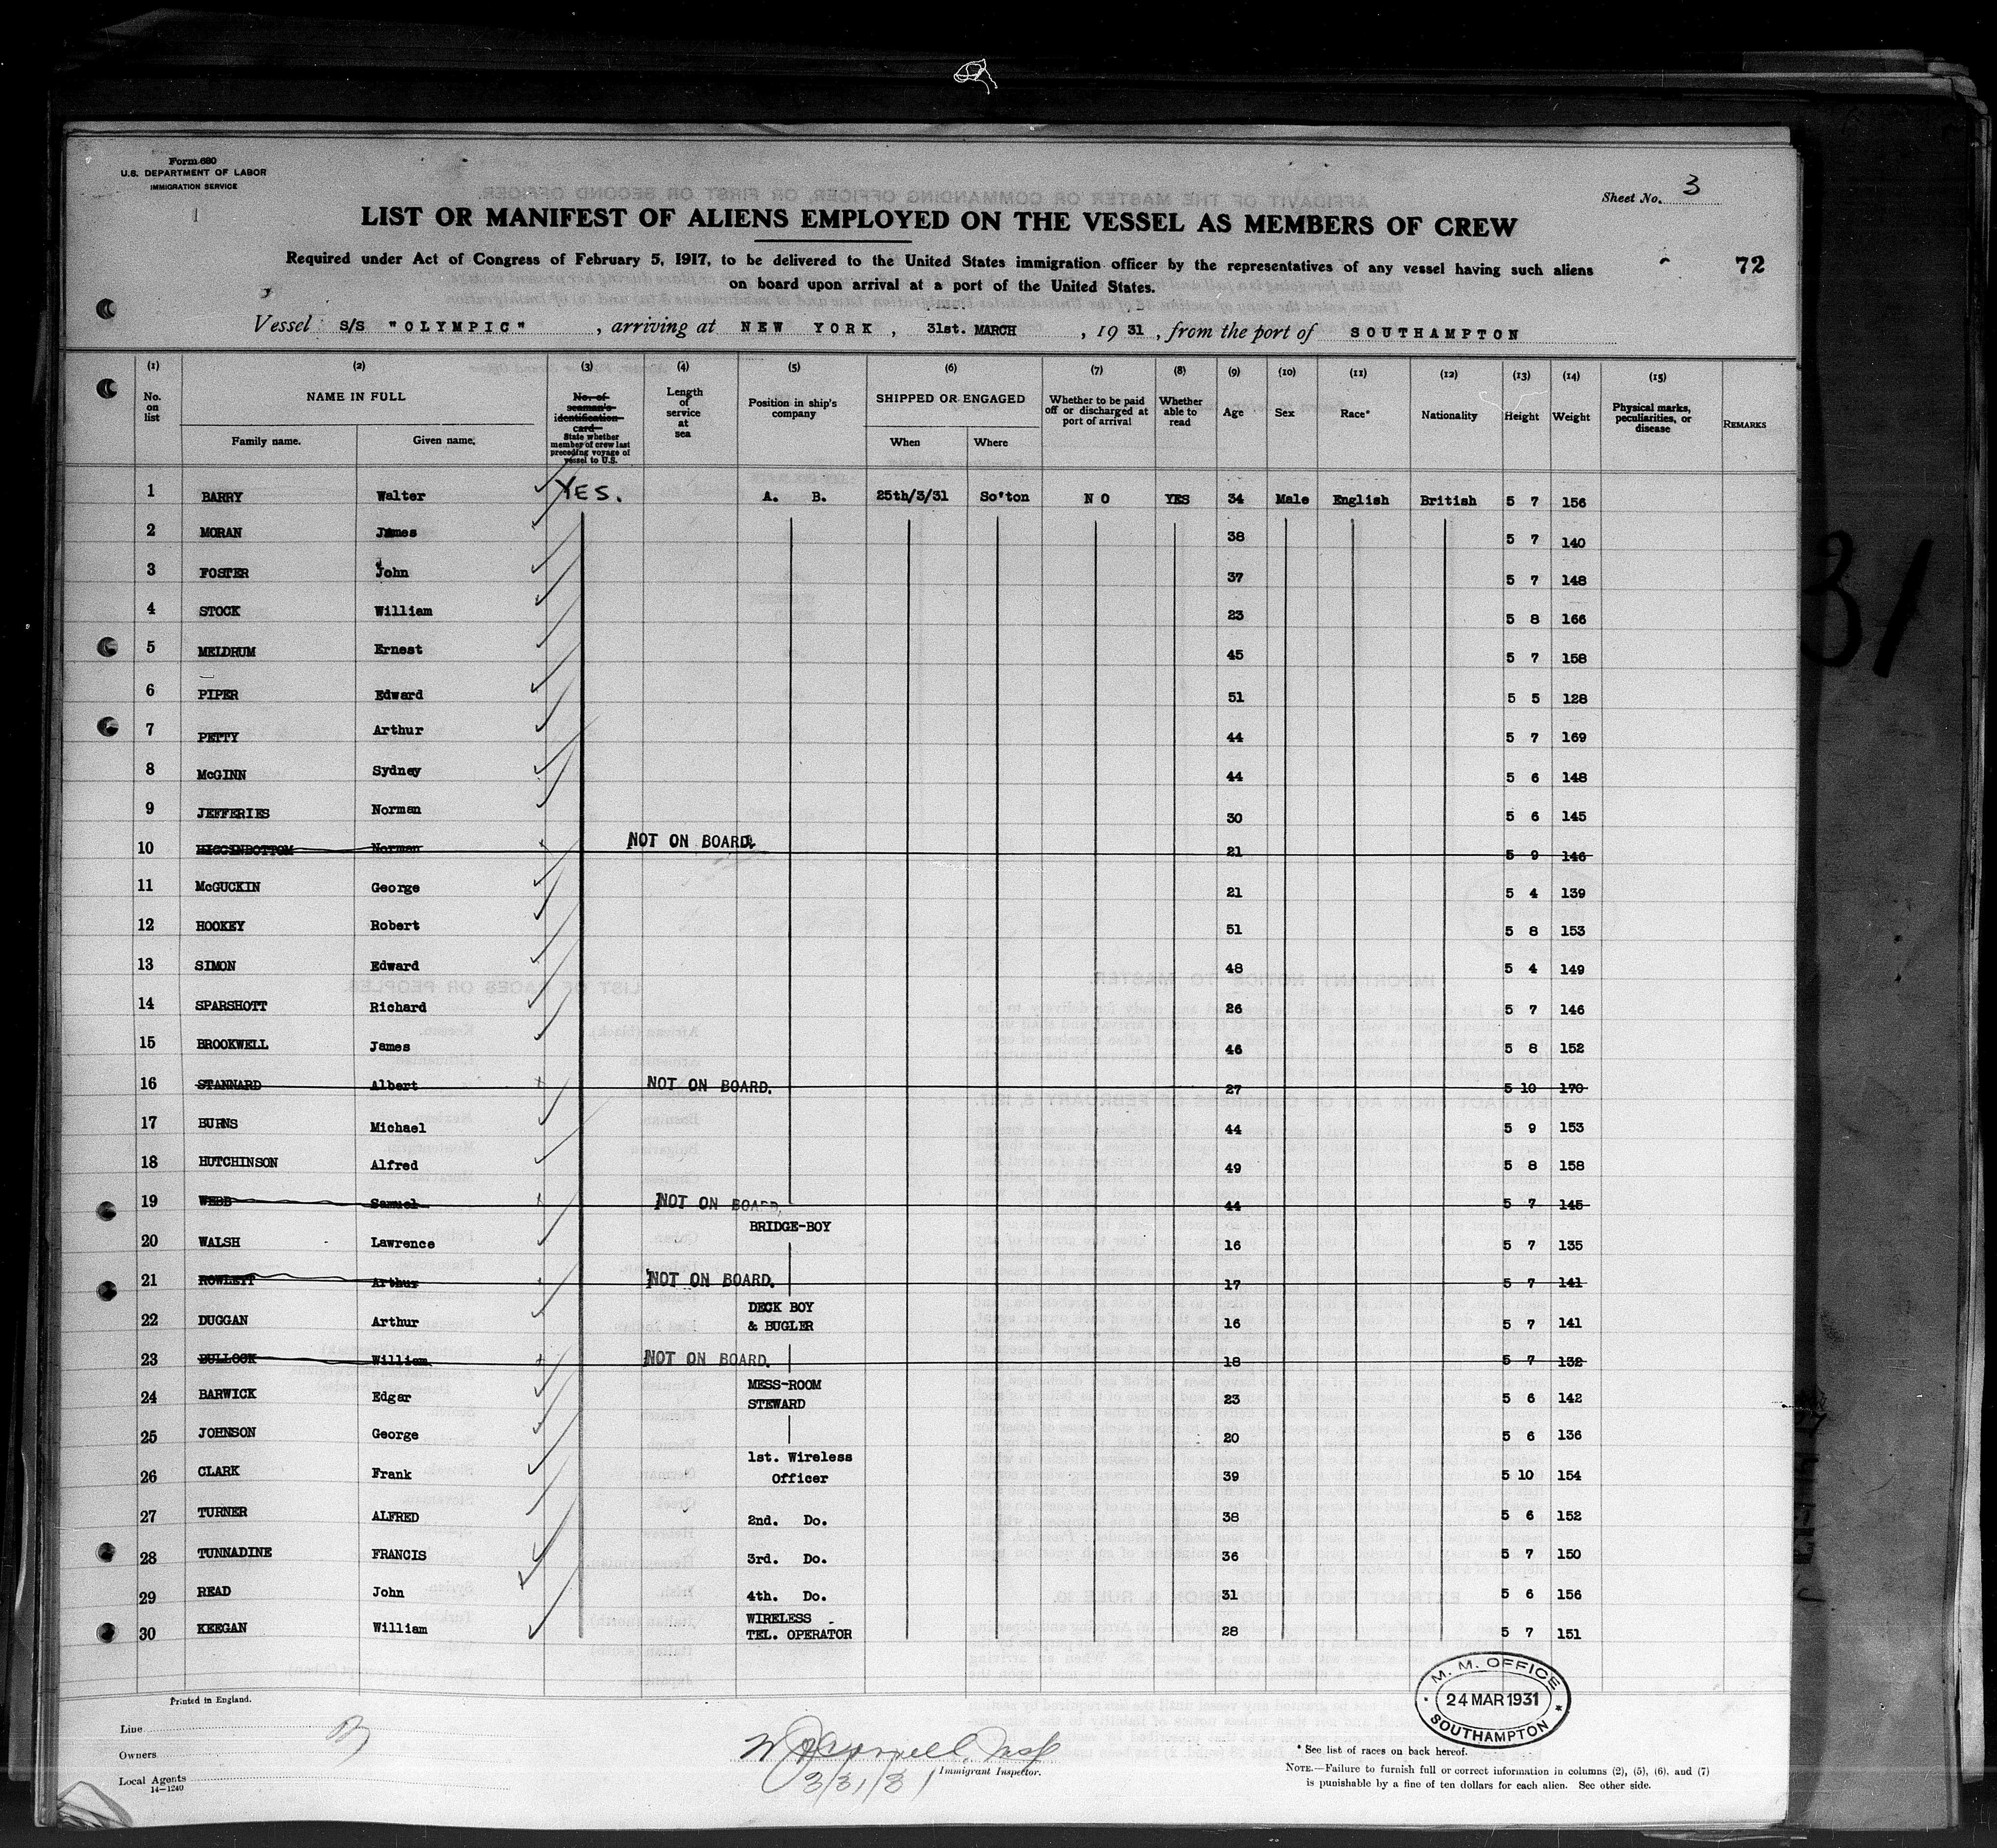 Form 680
U.S. DEPARTMENT OF LABOR
IMMIGRATION SERVICE
Sheet No. 3
LIST OR MANIFEST OF ALIENS EMPLOYED ON THE VESSEL AS MEMBERS OF CREW
Required under Act of Congress of February 5, 1917, to be delivered to the United States immigration officer by the representatives of any vessel having such aliens
on board upon arrival at a port of the United States.
72
Vessel S/S "OLYMPIC", arriving at NEW YORK, 31st. MARCH, 1931, from the port of SOUTHAMPTON
(1) (2) (3) (4) (5) (6) (7) (8) (9) (10) (11) (12) (13) (14) (15)
No. on list
NAME IN FULL
Family name. Given name.
No. of seaman's identification card
State whether member of crew last preceding voyage of vessel to U.S.
Length of service at sea
Position in ship's company
SHIPPED OR ENGAGED
When Where
Whether to be paid off or discharged at port of arrival
Whether able to read
Age
Sex
Race*
Nationality
Height
Weight
Physical marks, peculiarities, or disease
REMARKS
1 BARRY Walter YES. A. B. 25th/3/31 So'ton NO YES 34 Male English British 5 7 156
2 MORAN James 38 5 7 140
3 FOSTER John 37 5 7 148
4 STOCK William 23 5 8 166
5 MELDRUM Ernest 45 5 7 158
6 PIPER Edward 51 5 5 128
7 PETTY Arthur 44 5 7 169
8 McGINN Sydney 44 5 6 148
9 JEFFERIES Norman 30 5 6 145
10 HIGGINBOTTOM Norman NOT ON BOARD. 21 5 9 146
11 McGUCKIN George 21 5 4 139
12 HOOKEY Robert 51 5 8 153
13 SIMON Edward 48 5 4 149
14 SPARSHOTT Richard 26 5 7 146
15 BROOKWELL James 46 5 8 152
16 STANNARD Albert NOT ON BOARD. 27 5 10 170
17 BURNS Michael 44 5 9 153
18 HUTCHINSON Alfred 49 5 8 158
19 WEBB Samuel NOT ON BOARD. 44 5 7 145
20 WALSH Lawrence BRIDGE-BOY 16 5 7 135
21 ROWLETT Arthur NOT ON BOARD. 17 5 7 141
22 DUGGAN Arthur DECK BOY & BUGLER 16 5 7 141
23 BULLOCK William NOT ON BOARD. 18 5 7 132
24 BARWICK Edgar MESS-ROOM STEWARD 23 5 6 142
25 JOHNSON George 20 5 6 136
26 CLARK Frank 1st. Wireless Officer 39 5 10 154
27 TURNER ALFRED 2nd. Do. 38 5 6 152
28 TUNNADINE FRANCIS 3rd. Do. 36 5 7 150
29 READ John 4th. Do. 31 5 6 156
30 KEEGAN William WIRELESS TEL. OPERATOR 28 5 7 151
M. M. OFFICE
24 MAR 1931
SOUTHAMPTON
Printed in England.
Line
Owners
Local Agents
14-1240
3/31/31
Immigrant Inspector.
* See list of races on back hereof.
NOTE.—Failure to furnish full or correct information in columns (2), (5), (6), and (7)
is punishable by a fine of ten dollars for each alien. See other side.
31